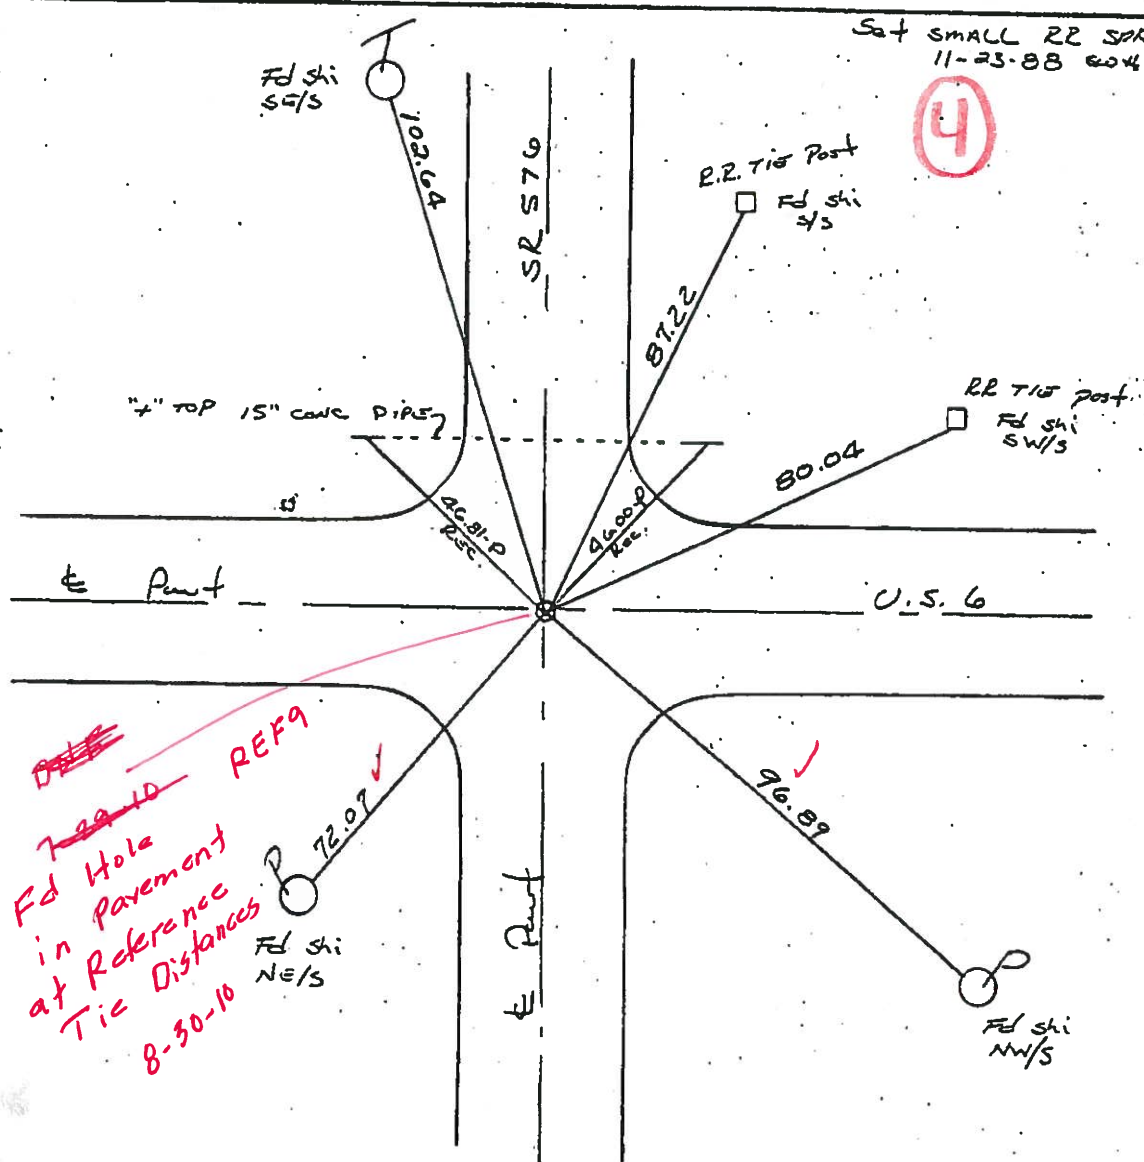 Set SMALL RR SPK
11-23-88
4
Fd shi
SE/S
102.64
SR 576
R.R. TIE Post
Fd shi
S/S
87.22
"+" TOP 15" CONC PIPE
RR TIE post
Fd shi
SW/S
80.04
46.81-P
REC.
46.00-P
Rec.
℄ Pvmt
U.S. 6
REF9
7-29-10
Fd Hole
in Pavement
at Reference
Tie Distances
8-30-10
72.07
96.89
Fd shi
NE/S
℄ Pvmt
Fd shi
NW/S